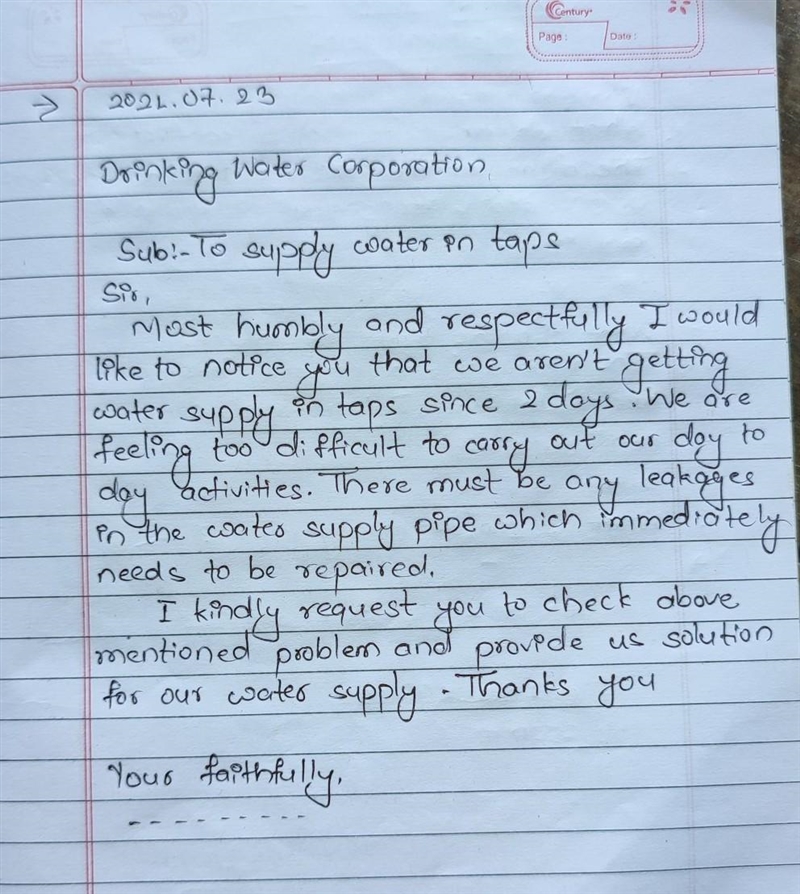 Century
Page : Date :
→ 2021.07.23
Drinking Water Corporation
Sub:- To supply water in taps
Sir,
Most humbly and respectfully I would
like to notice you that we aren't getting
water supply in taps since 2 days. We are
feeling too difficult to carry out our day to
day activities. There must be any leakages
in the water supply pipe which immediately
needs to be repaired.
I kindly request you to check above
mentioned problem and provide us solution
for our water supply. Thanks you
Your faithfully,
---------